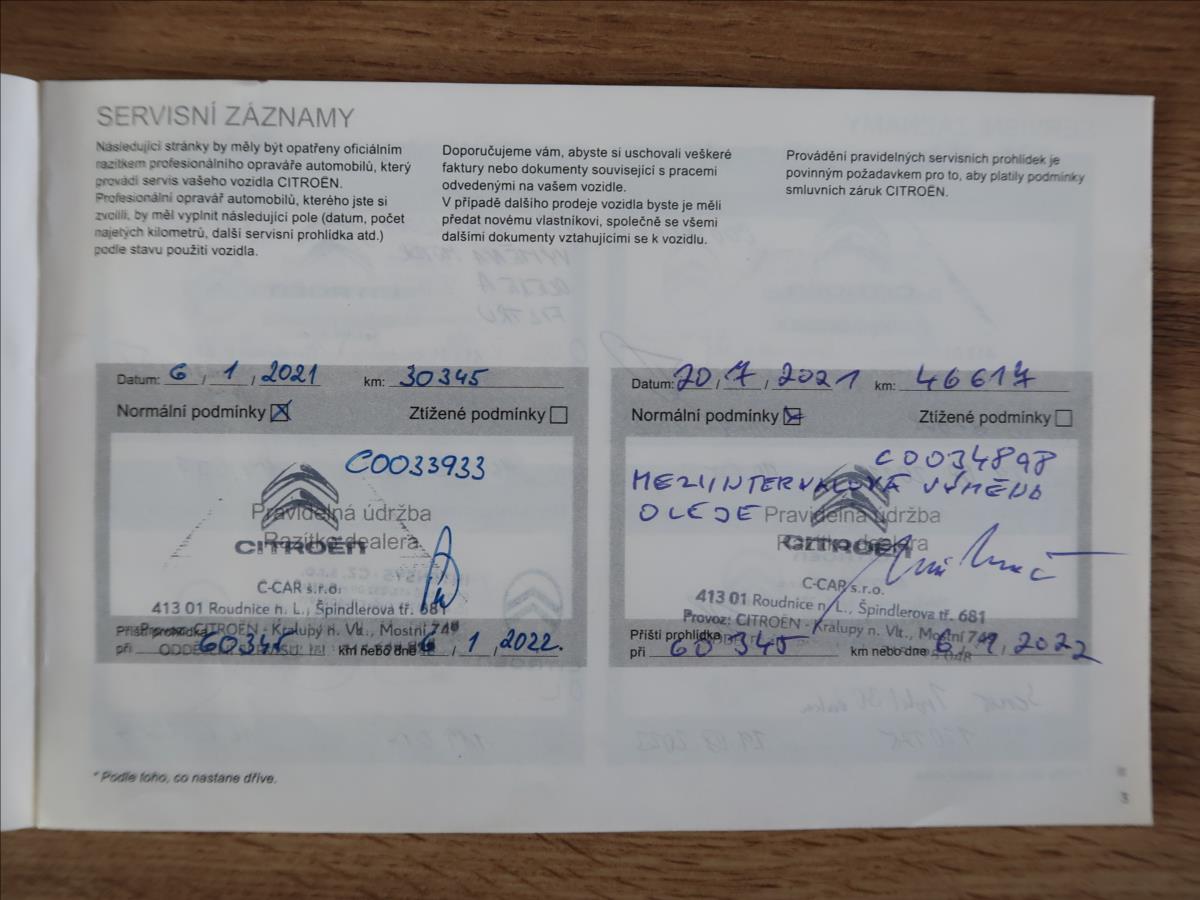 SERVISNÍ ZÁZNAMY
Následující stránky by měly být opatřeny oficiálním
razítkem profesionálního opraváře automobilů, který
provádí servis vašeho vozidla CITROËN.
Profesionální opravář automobilů, kterého jste si
zvolili, by měl vyplnit následující pole (datum, počet
najetých kilometrů, další servisní prohlídka atd.)
podle stavu použití vozidla.
Doporučujeme vám, abyste si uschovali veškeré
faktury nebo dokumenty související s pracemi
odvedenými na vašem vozidle.
V případě dalšího prodeje vozidla byste je měli
předat novému vlastníkovi, společně se všemi
dalšími dokumenty vztahujícími se k vozidlu.
Provádění pravidelných servisních prohlídek je
povinným požadavkem pro to, aby platily podmínky
smluvních záruk CITROËN.
Datum: 6 / 1 / 2021 km: 30345
Normální podmínky Ztížené podmínky
C0033933
Pravidelná údržba
Razítko dealera
CITROËN
C-CAR s.r.o.
413 01 Roudnice n. L., Špindlerova tř. 681
Provoz: CITROËN - Kralupy n. Vlt., Mostní 748
Příští prohlídka
při 60345 km nebo dne 6 / 1 / 2022.
Datum: 20 / 7 / 2021 km: 46617
Normální podmínky Ztížené podmínky
C0034898
MEZIINTERVALOVÁ VÝMĚNA
OLEJE
Pravidelná údržba
Razítko dealera
CITROËN
C-CAR s.r.o.
413 01 Roudnice n. L., Špindlerova tř. 681
Provoz: CITROËN - Kralupy n. Vlt., Mostní 748
Příští prohlídka
při 60345 km nebo dne 6 / 1 / 2022
* Podle toho, co nastane dříve.
3